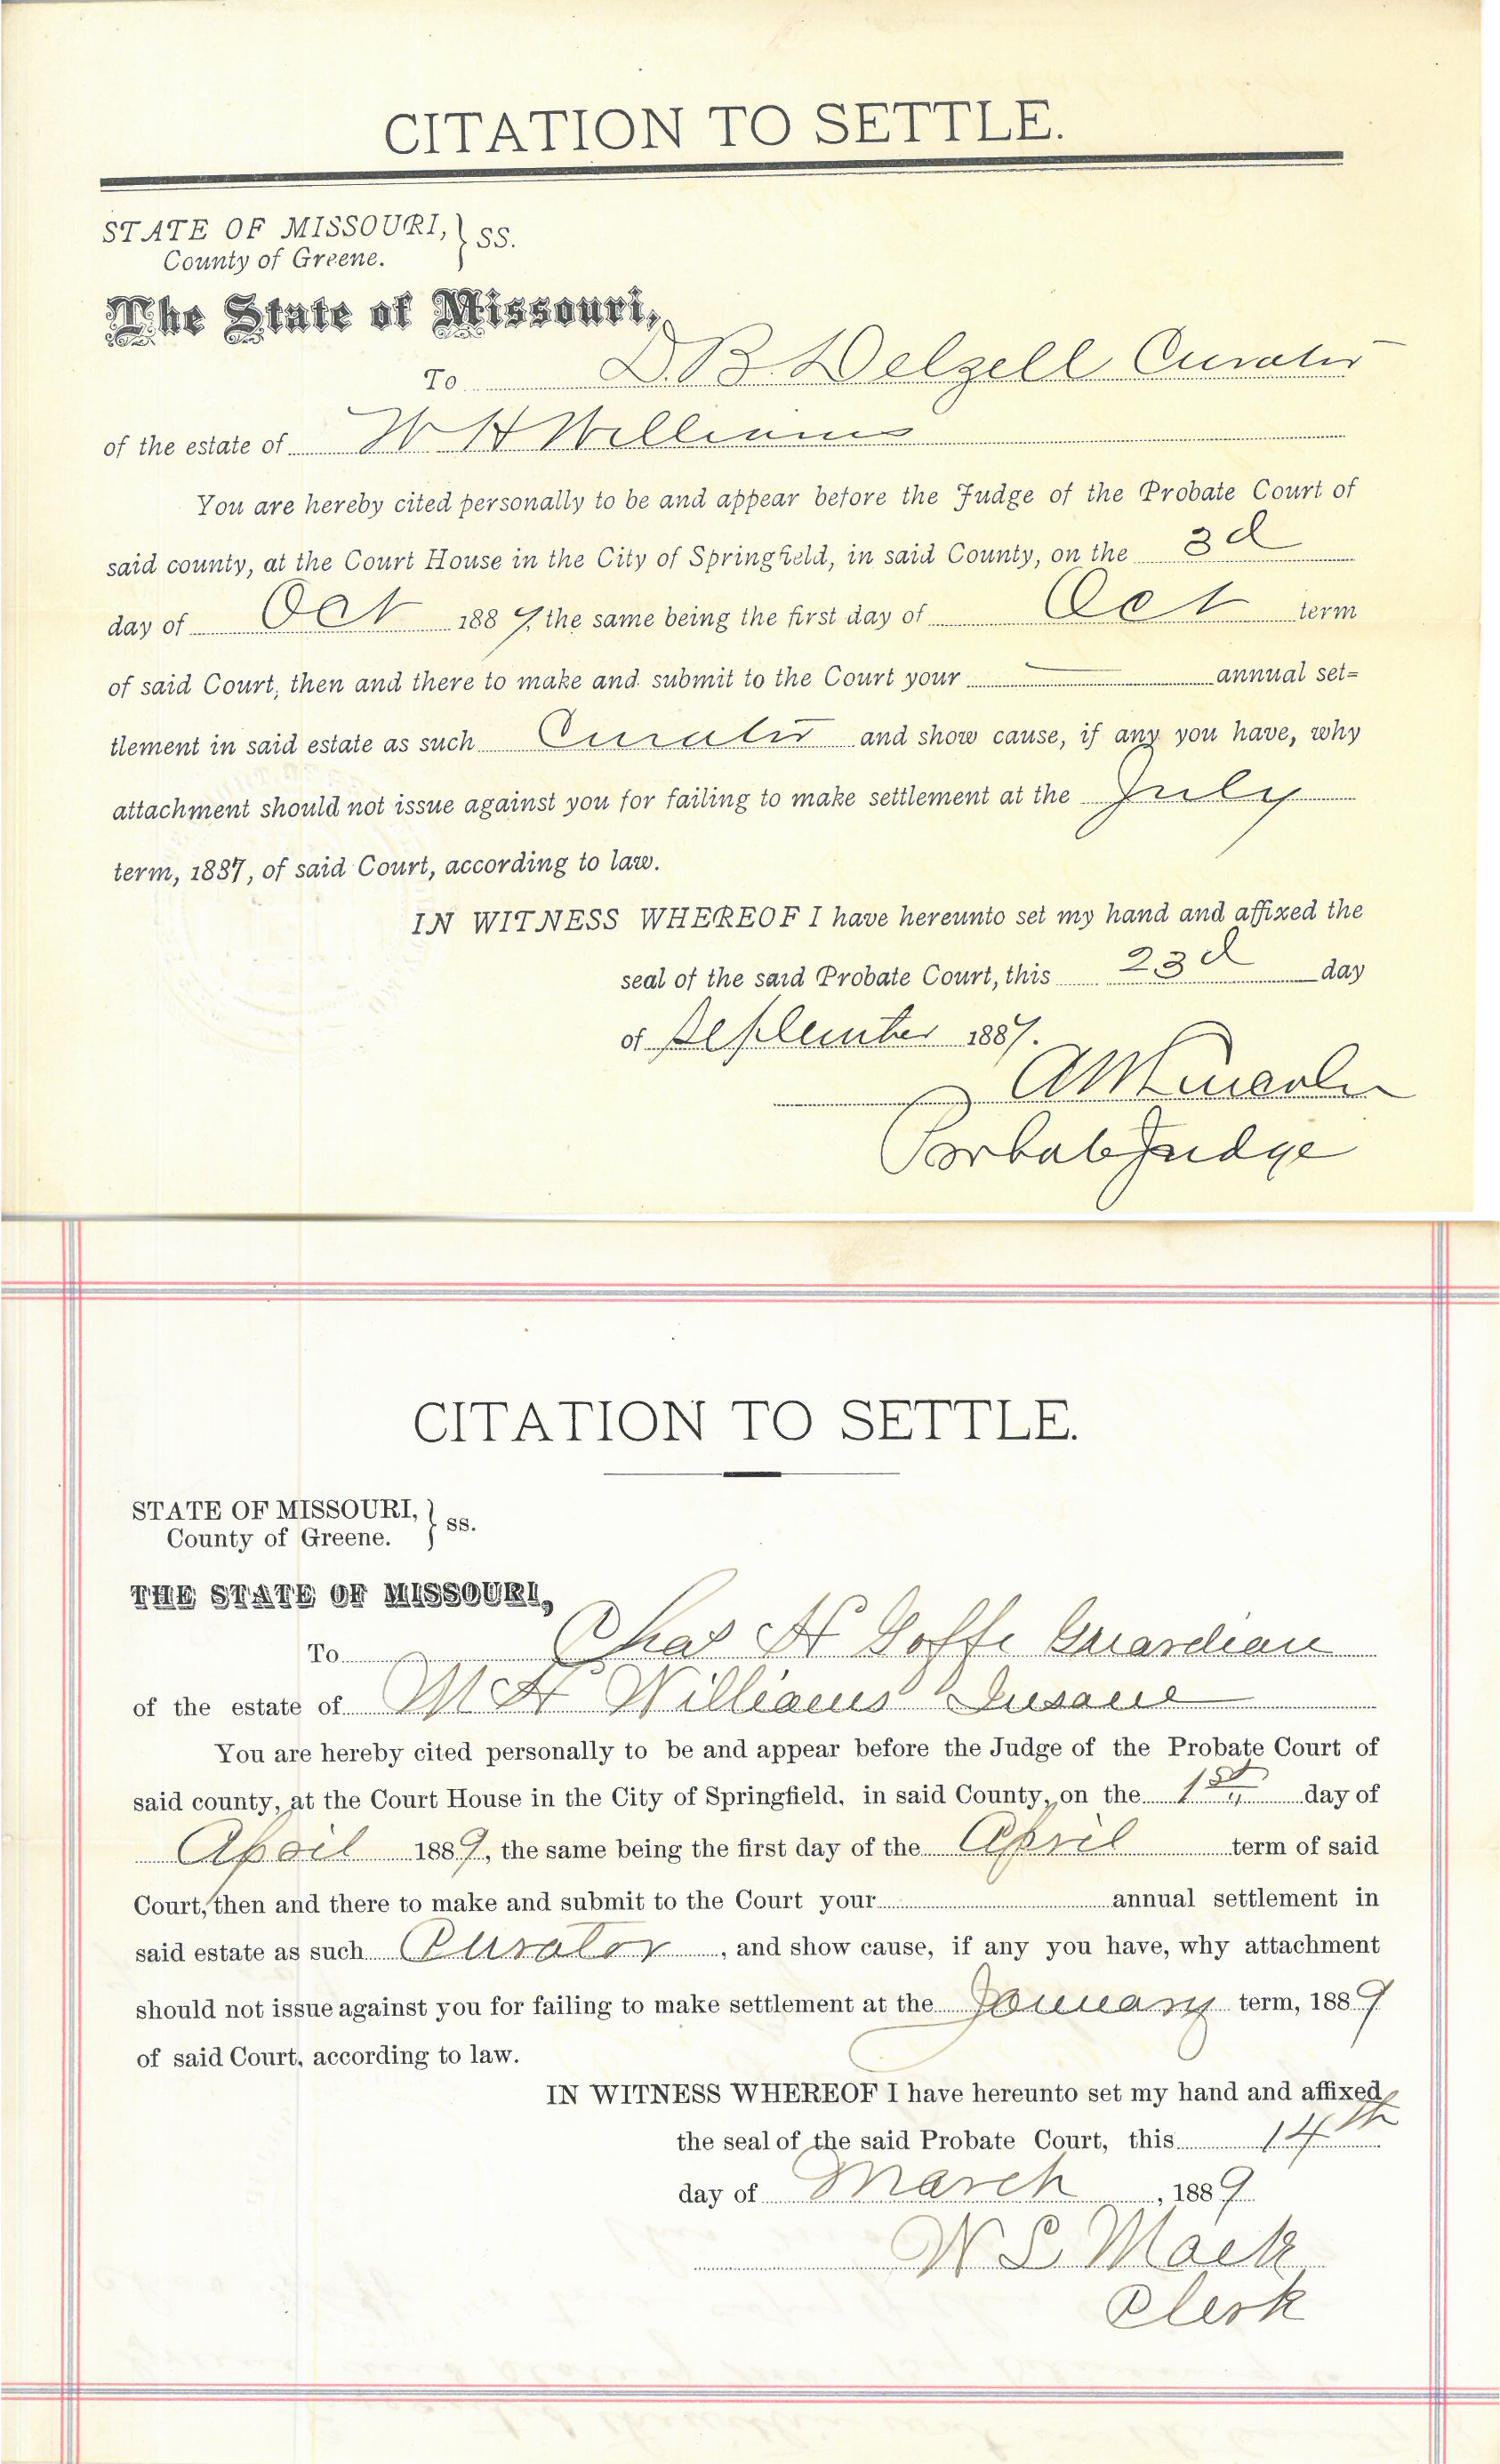 CITATION TO SETTLE.
STATE OF MISSOURI, } SS.
County of Greene.
The State of Missouri,
To D. B. Delzell Curator
of the estate of W H Williams
You are hereby cited personally to be and appear before the Judge of the Probate Court of
said county, at the Court House in the City of Springfield, in said County, on the 3d
day of Oct 1887, the same being the first day of Oct term
of said Court, then and there to make and submit to the Court your — annual set=
tlement in said estate as such Curator and show cause, if any you have, why
attachment should not issue against you for failing to make settlement at the July
term, 1887, of said Court, according to law.
IN WITNESS WHEREOF I have hereunto set my hand and affixed the
seal of the said Probate Court, this 23d day
of September 1887.
A M Lincoln
Probate Judge
CITATION TO SETTLE.
STATE OF MISSOURI, } ss.
County of Greene.
THE STATE OF MISSOURI,
To Chas H Goffe Guardian
of the estate of M H Williams Insane
You are hereby cited personally to be and appear before the Judge of the Probate Court of
said county, at the Court House in the City of Springfield, in said County, on the 1st day of
April 1889, the same being the first day of the April term of said
Court, then and there to make and submit to the Court your annual settlement in
said estate as such Curator, and show cause, if any you have, why attachment
should not issue against you for failing to make settlement at the January term, 1889
of said Court, according to law.
IN WITNESS WHEREOF I have hereunto set my hand and affixed
the seal of the said Probate Court, this 14th
day of March, 1889
W L Mack
Clerk